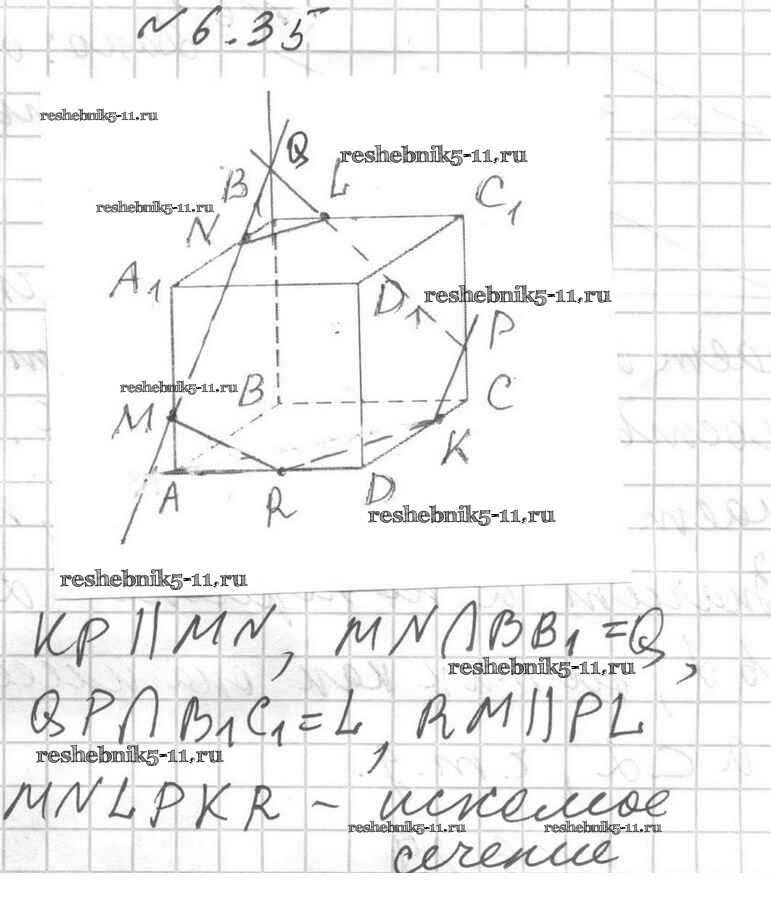 №6.35
reshebnik5-11.ru
Q
reshebnik5-11.ru
B1
L
C1
reshebnik5-11.ru
N
A1
D1
reshebnik5-11.ru
P
reshebnik5-11.ru
B
C
M
K
A
R
D
reshebnik5-11.ru
reshebnik5-11.ru
KP||MN, MN∩BB1=Q,
reshebnik5-11.ru
QP∩B1C1=L, RM||PL
reshebnik5-11.ru
MNLPKR – искомое
reshebnik5-11.ru
reshebnik5-11.ru
сечение